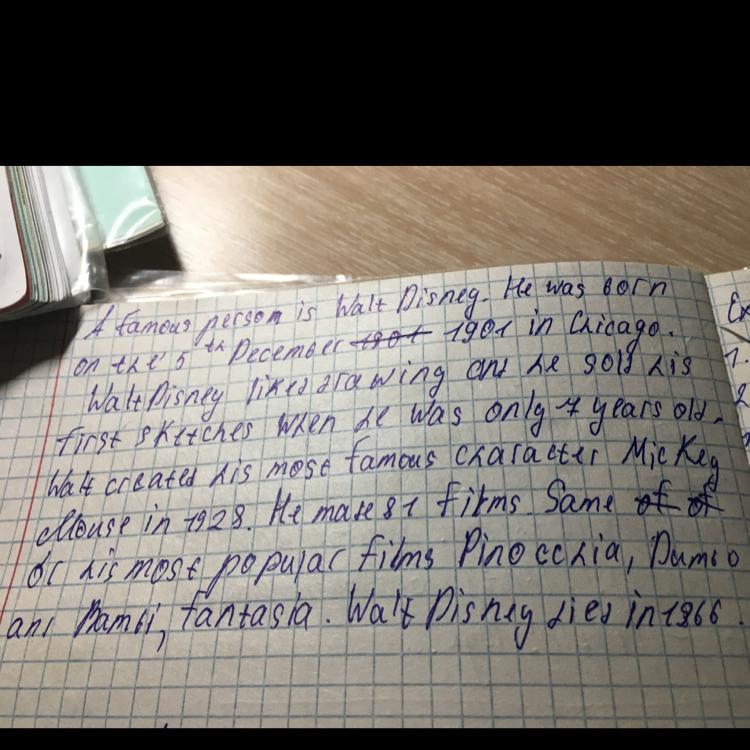 A famous person is Walt Disney. He was born
on the 5th December 1901 1901 in Chicago.
Walt Disney liked drawing and he sold his
first sketches when he was only 7 years old.
Walt created his most famous character Mickey
Mouse in 1928. He made 81 films. Same of of
of his most popular films Pinocchia, Dumbo
and Bambi, fantasia. Walt Disney died in 1966.
Ex
1.
2